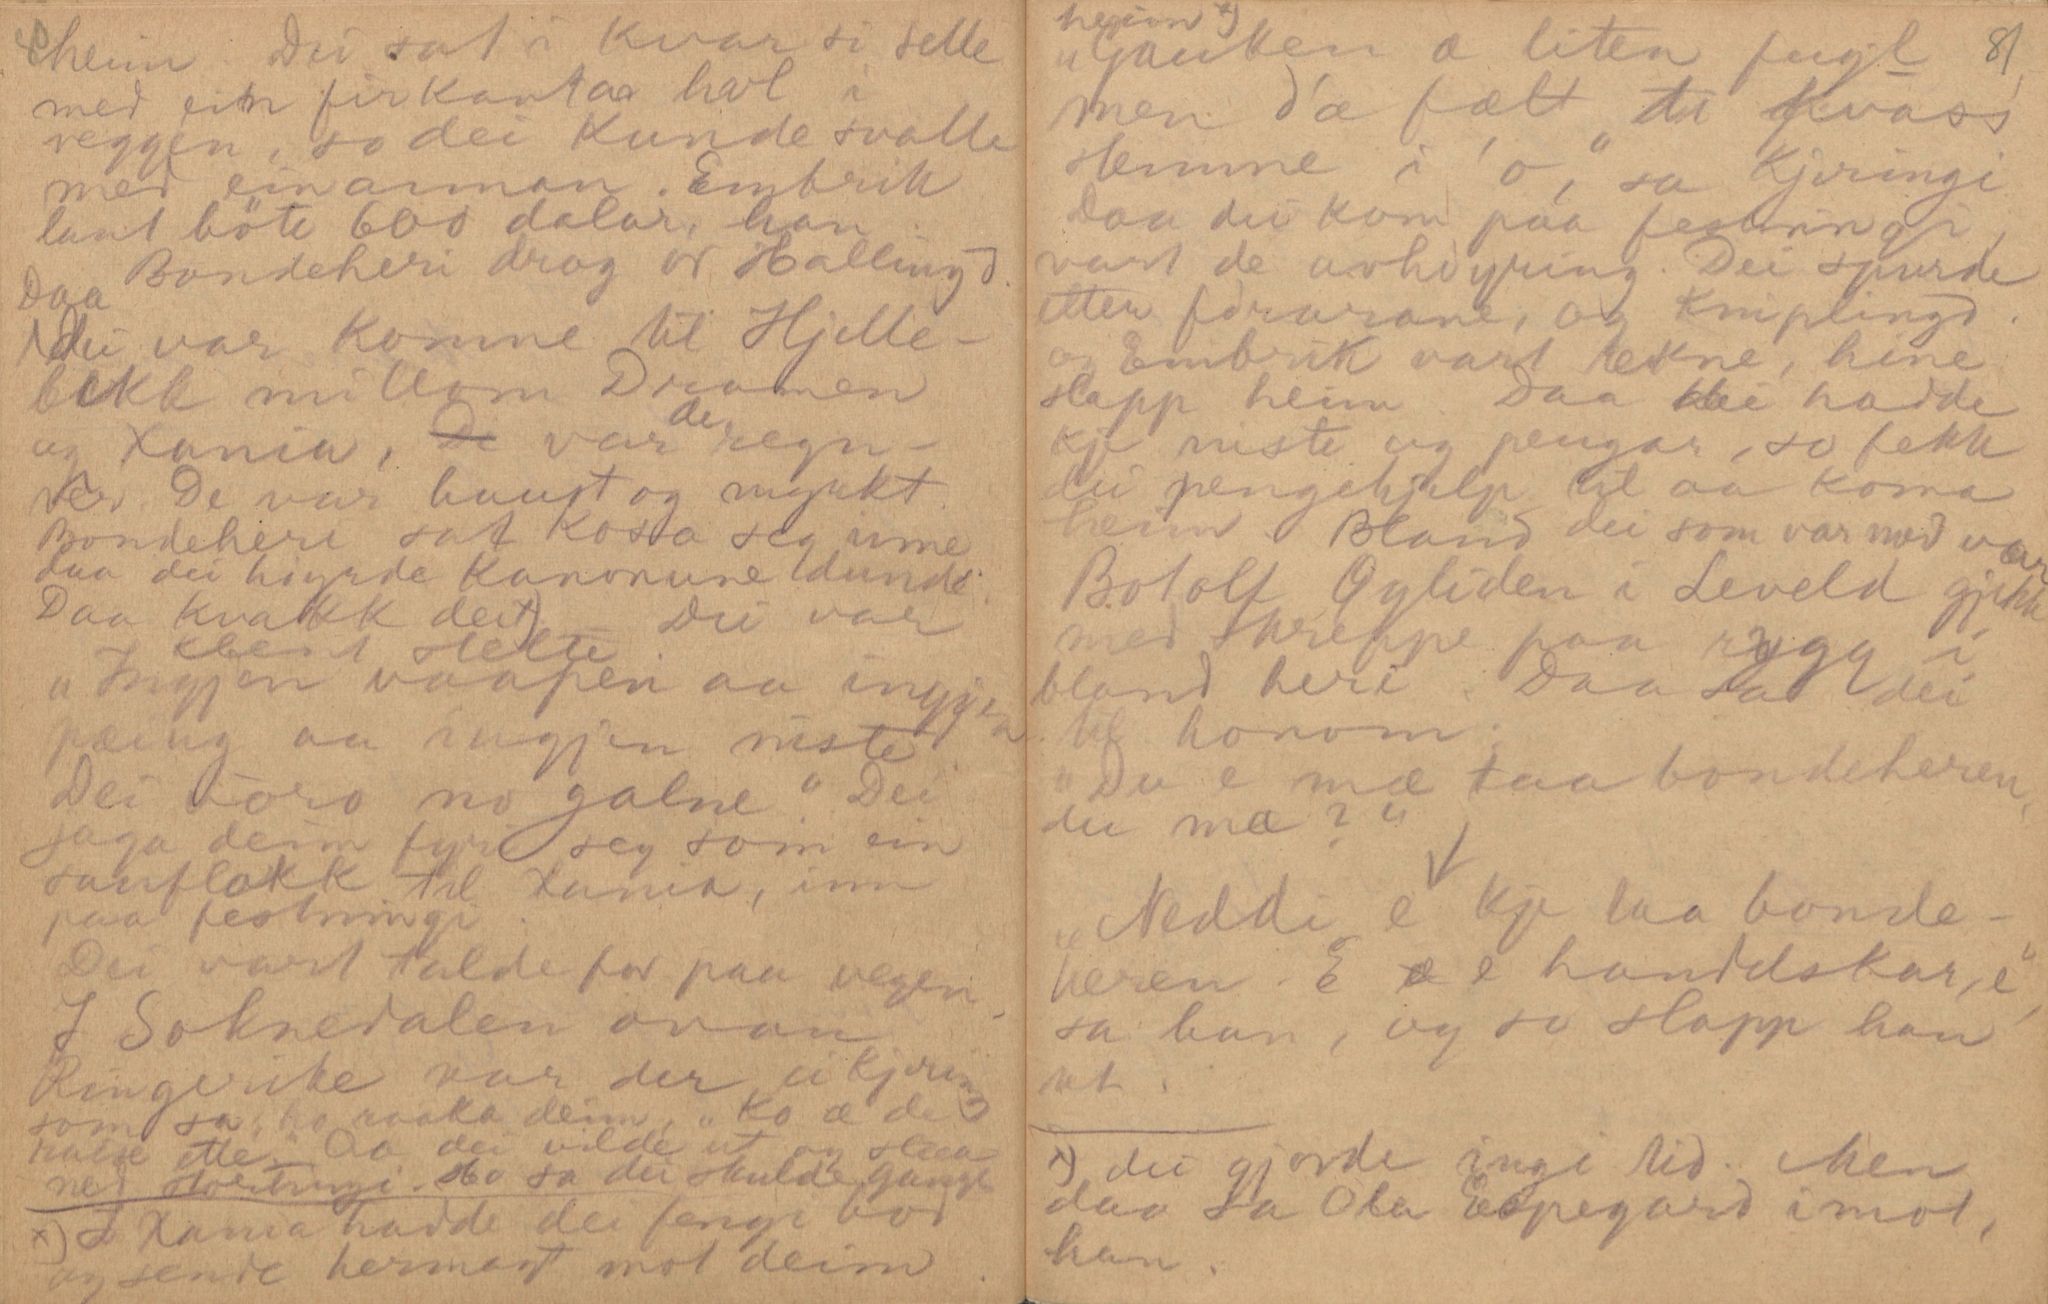 heim. Dei sat i kvar si selle
med ein firkanta hòl i
veggen, so dei kunde svalle
med einannan. Embrik
laut böte 600 dalar, han
Bondeheri drog or Hallingd.
Daa
dei var komne til Hjelle-
bekk millom Dramen
og Xania, var de regn-
ver. De var haust og myrkt.
Bondeheri sat kosa seg inne
daa dei höyrde kanonune dunde.
Daa kvakk dei x) Dei var
kleent stelte
"Ingjen vaapen aa ingjen
pæing aa ingjen niste
Dei vòro no galne" Dei
jaga deim fyri seg som ein
sauflokk til Xania, inn
paa festningi.
Dei vart talde for paa vegen.
I Soknedalen ovan
Ringerike var der ei kjering
som sa, ho raaka deim, "Ko æ de
ette." Aa dei vilde ut og slaa
ned stortingi. Ho sa dei skulde gange
x) I Xania hadde dei fenge bod
og sende hermagt mot deim.
81
heim x)
"Gauken æ liten fugl
men d'æ fælt te kvass
stemne i 'o," sa kjeringi
Daa dei kom paa festningi,
vart de avhöyring. Dei spurde
etter förarane, og Kniplingd.
og Embrik vart tekne, hine
slapp heim. Daa dei hadde
kje niste og pengar, so fekk
dei pengehjelp til aa koma
heim. Bland dei som var med var
Botolf Gyliden i Leveld gjekk
med skreppe paa rygg i
bland heri. Daa sa dei
til honom:
"Du e mæ taa bondeheren,
du mæ?"
"Neddi e kje taa bonde-
heren. E e handdskar, e",
sa han, og so slapp han
ut.
x) dei gjorde ingi lid. Men
daa sa Ola Espegard imot,
han.